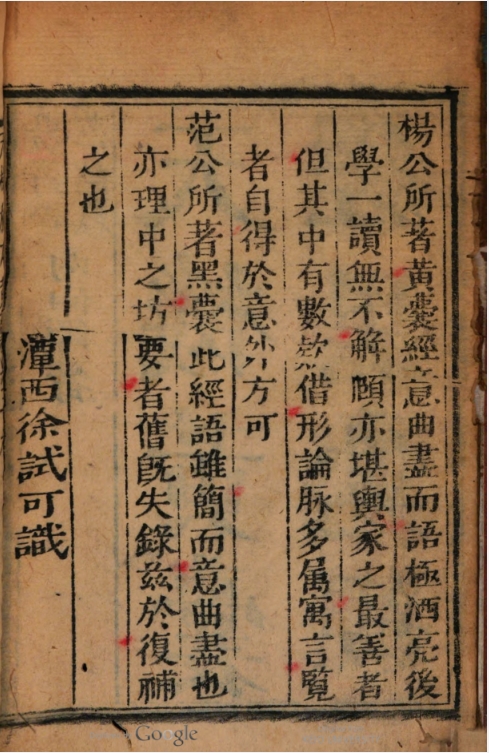 楊公所著黃囊經意曲盡而語極洒亮後
學一讀無不解頤亦堪輿家之最善者
但其中有數欵借形論脉多属寓言覽
者自得於意外方可
范公所著黑囊此經語雖簡而意曲盡也
亦理中之坊要者舊旣失錄茲於復補
之也
潭西徐試可識
Google